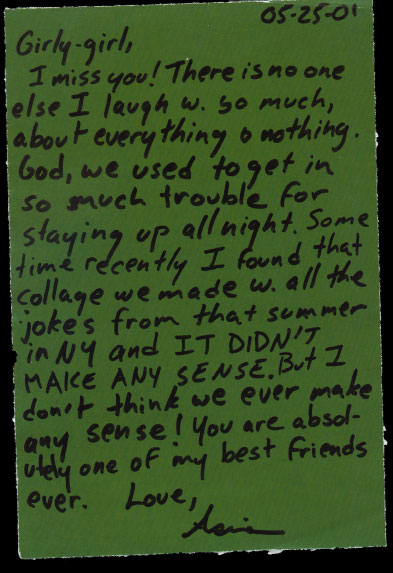 05-25-01
Girly-girl,
I miss you! There is no one
else I laugh w. so much,
about everything & nothing.
God, we used to get in
so much trouble for
staying up all night. Some
time recently I found that
collage we made w. all the
jokes from that summer
in NY and IT DIDN'T
MAKE ANY SENSE. But I
don't think we ever make
any sense! You are absol-
utely one of my best friends
ever. Love,
Asia